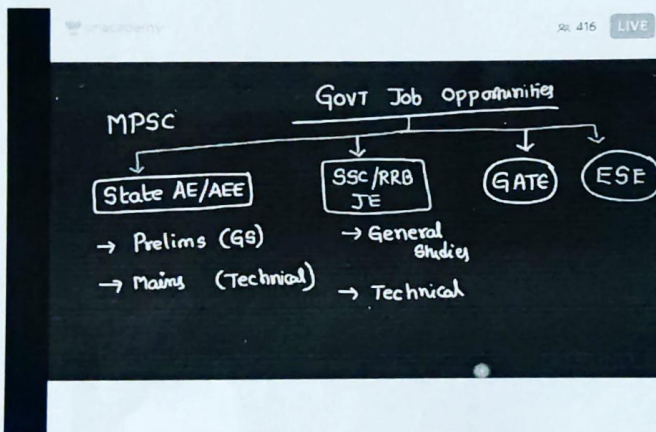 unacademy
416 LIVE
GOVT Job Opportunities
MPSC
State AE/AEE
→ Prelims (GS)
→ Mains (Technical)
SSC/RRB
JE
→ General
Studies
→ Technical
GATE
ESE